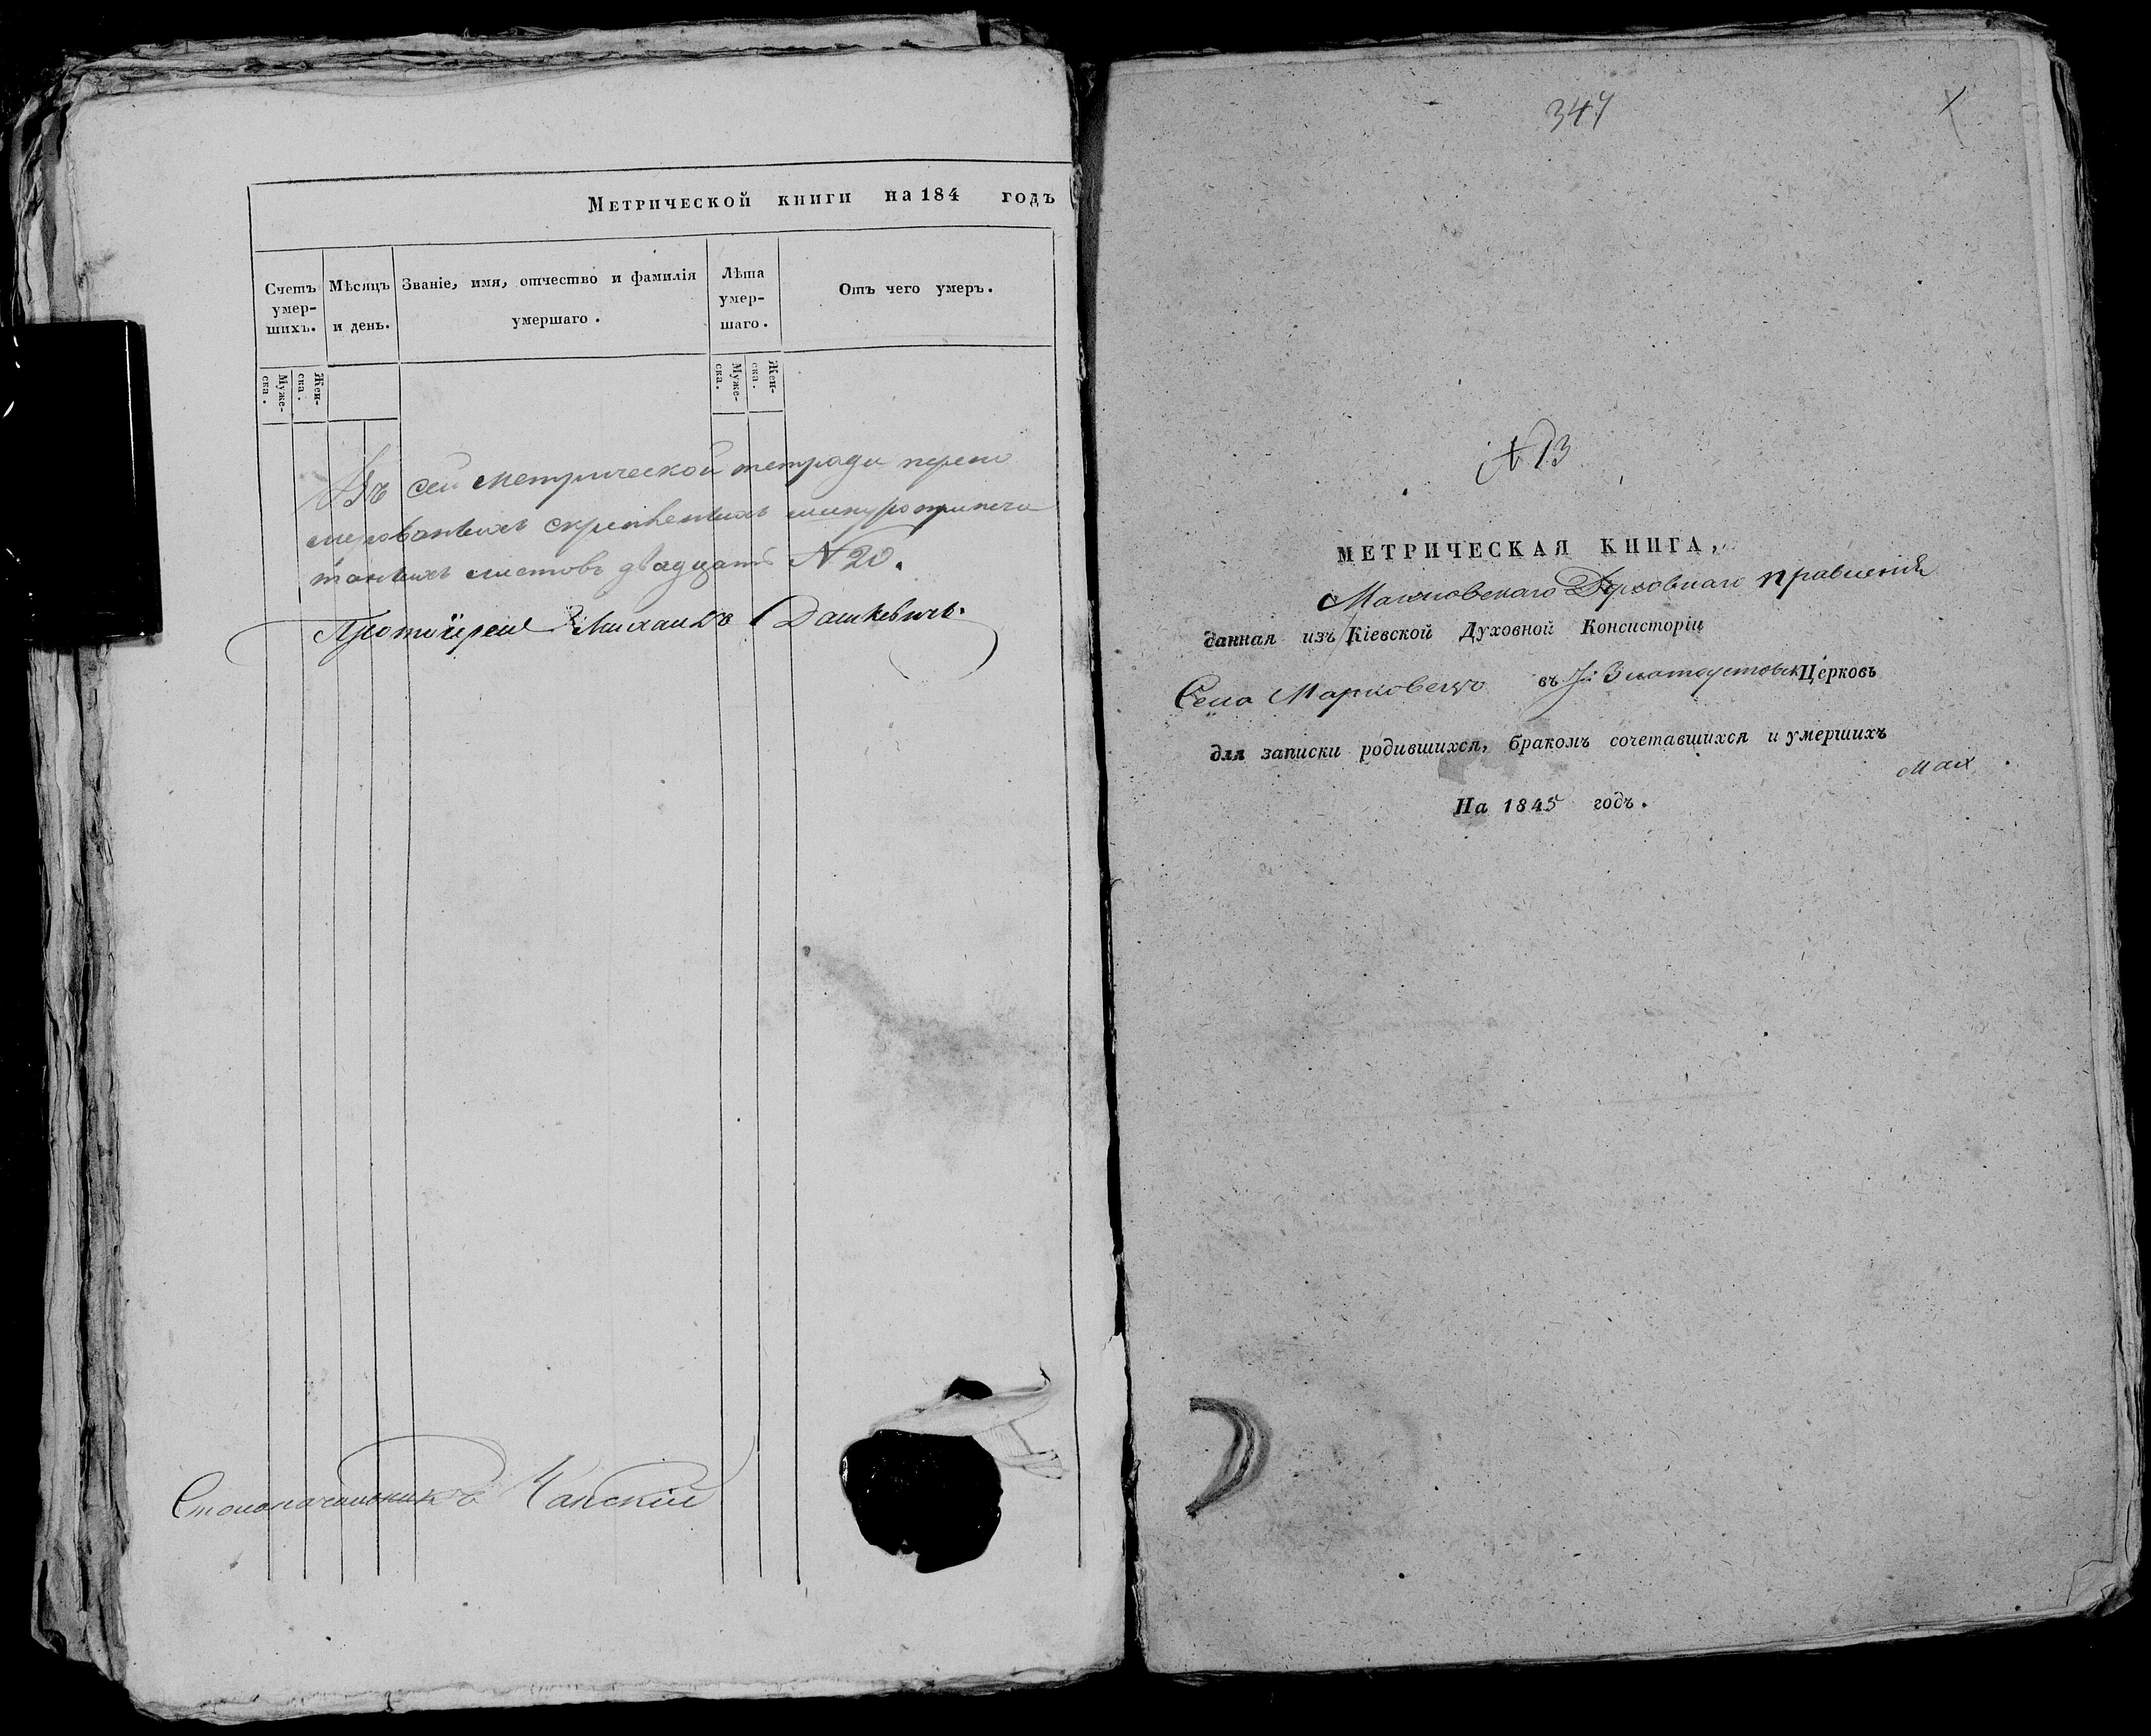 Метрической книги на 184 годъ
Счетъ умер-шихъ.
Мѣсяцъ и день.
Званіе, имя, отчество и фамилія умершаго.
Лѣта умер-шаго.
Отъ чего умеръ.
Муже-ска.
Жен-ска.
Муже-ска.
Жен-ска.
Въ сей метрической тетради перену
мерованныхъ скрепленныхъ шнуроприпеча
танныхъ листовъ двадцать N 20.
Протоіерей Михаилъ Дашкевичъ.
Столоначальникъ Чапскій
347
N 13
МЕТРИЧЕСКАЯ КНИГА,
Махновскаго Духовнаго правленія
данная изъ Кіевской Духовной Консисторіи
Села Марковецъ въ Златоустовск Церковь
для записки родившихся, бракомъ сочетавшихся и умершихъ
Мах
На 1845 годъ.